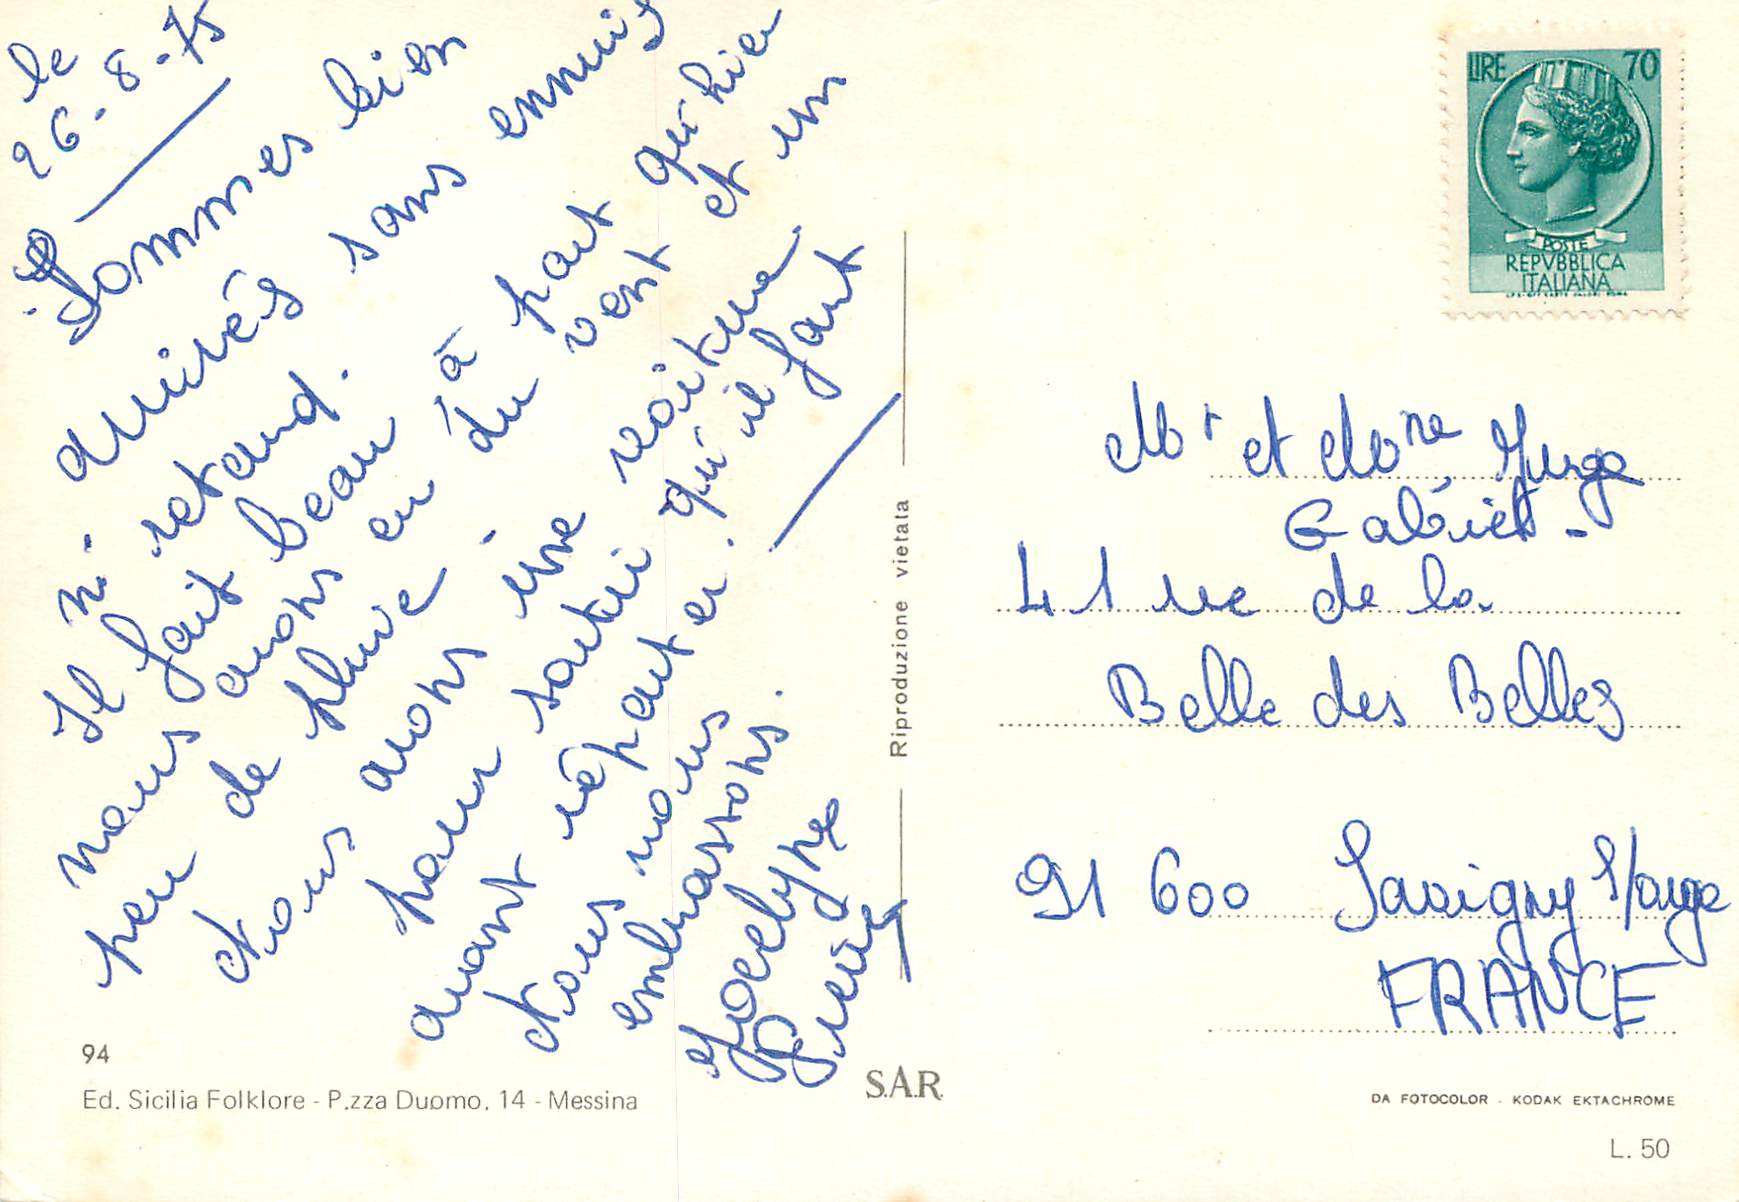 le
26-8-75
Sommes bien
arrivés sans ennuis
ni retard.
Il fait beau à part qu'hier
nous avons eu du vent et un
peu de pluie
Nous avons une voiture
pour sortir qu'il faut
avant réparter.
Nous vous
embrassons.
Jocelyne
Pierre
Mr et Mme
Gabriel -
41 rue de la
Belle des Belles
91 600 Savigny S/orge
FRANCE
LIRE 70
POSTE
REPVBBLICA
ITALIANA
Riproduzione vietata
94
Ed. Sicilia Folklore - P.zza Duomo, 14 - Messina
S.A.R.
DA FOTOCOLOR - KODAK EKTACHROME
L. 50